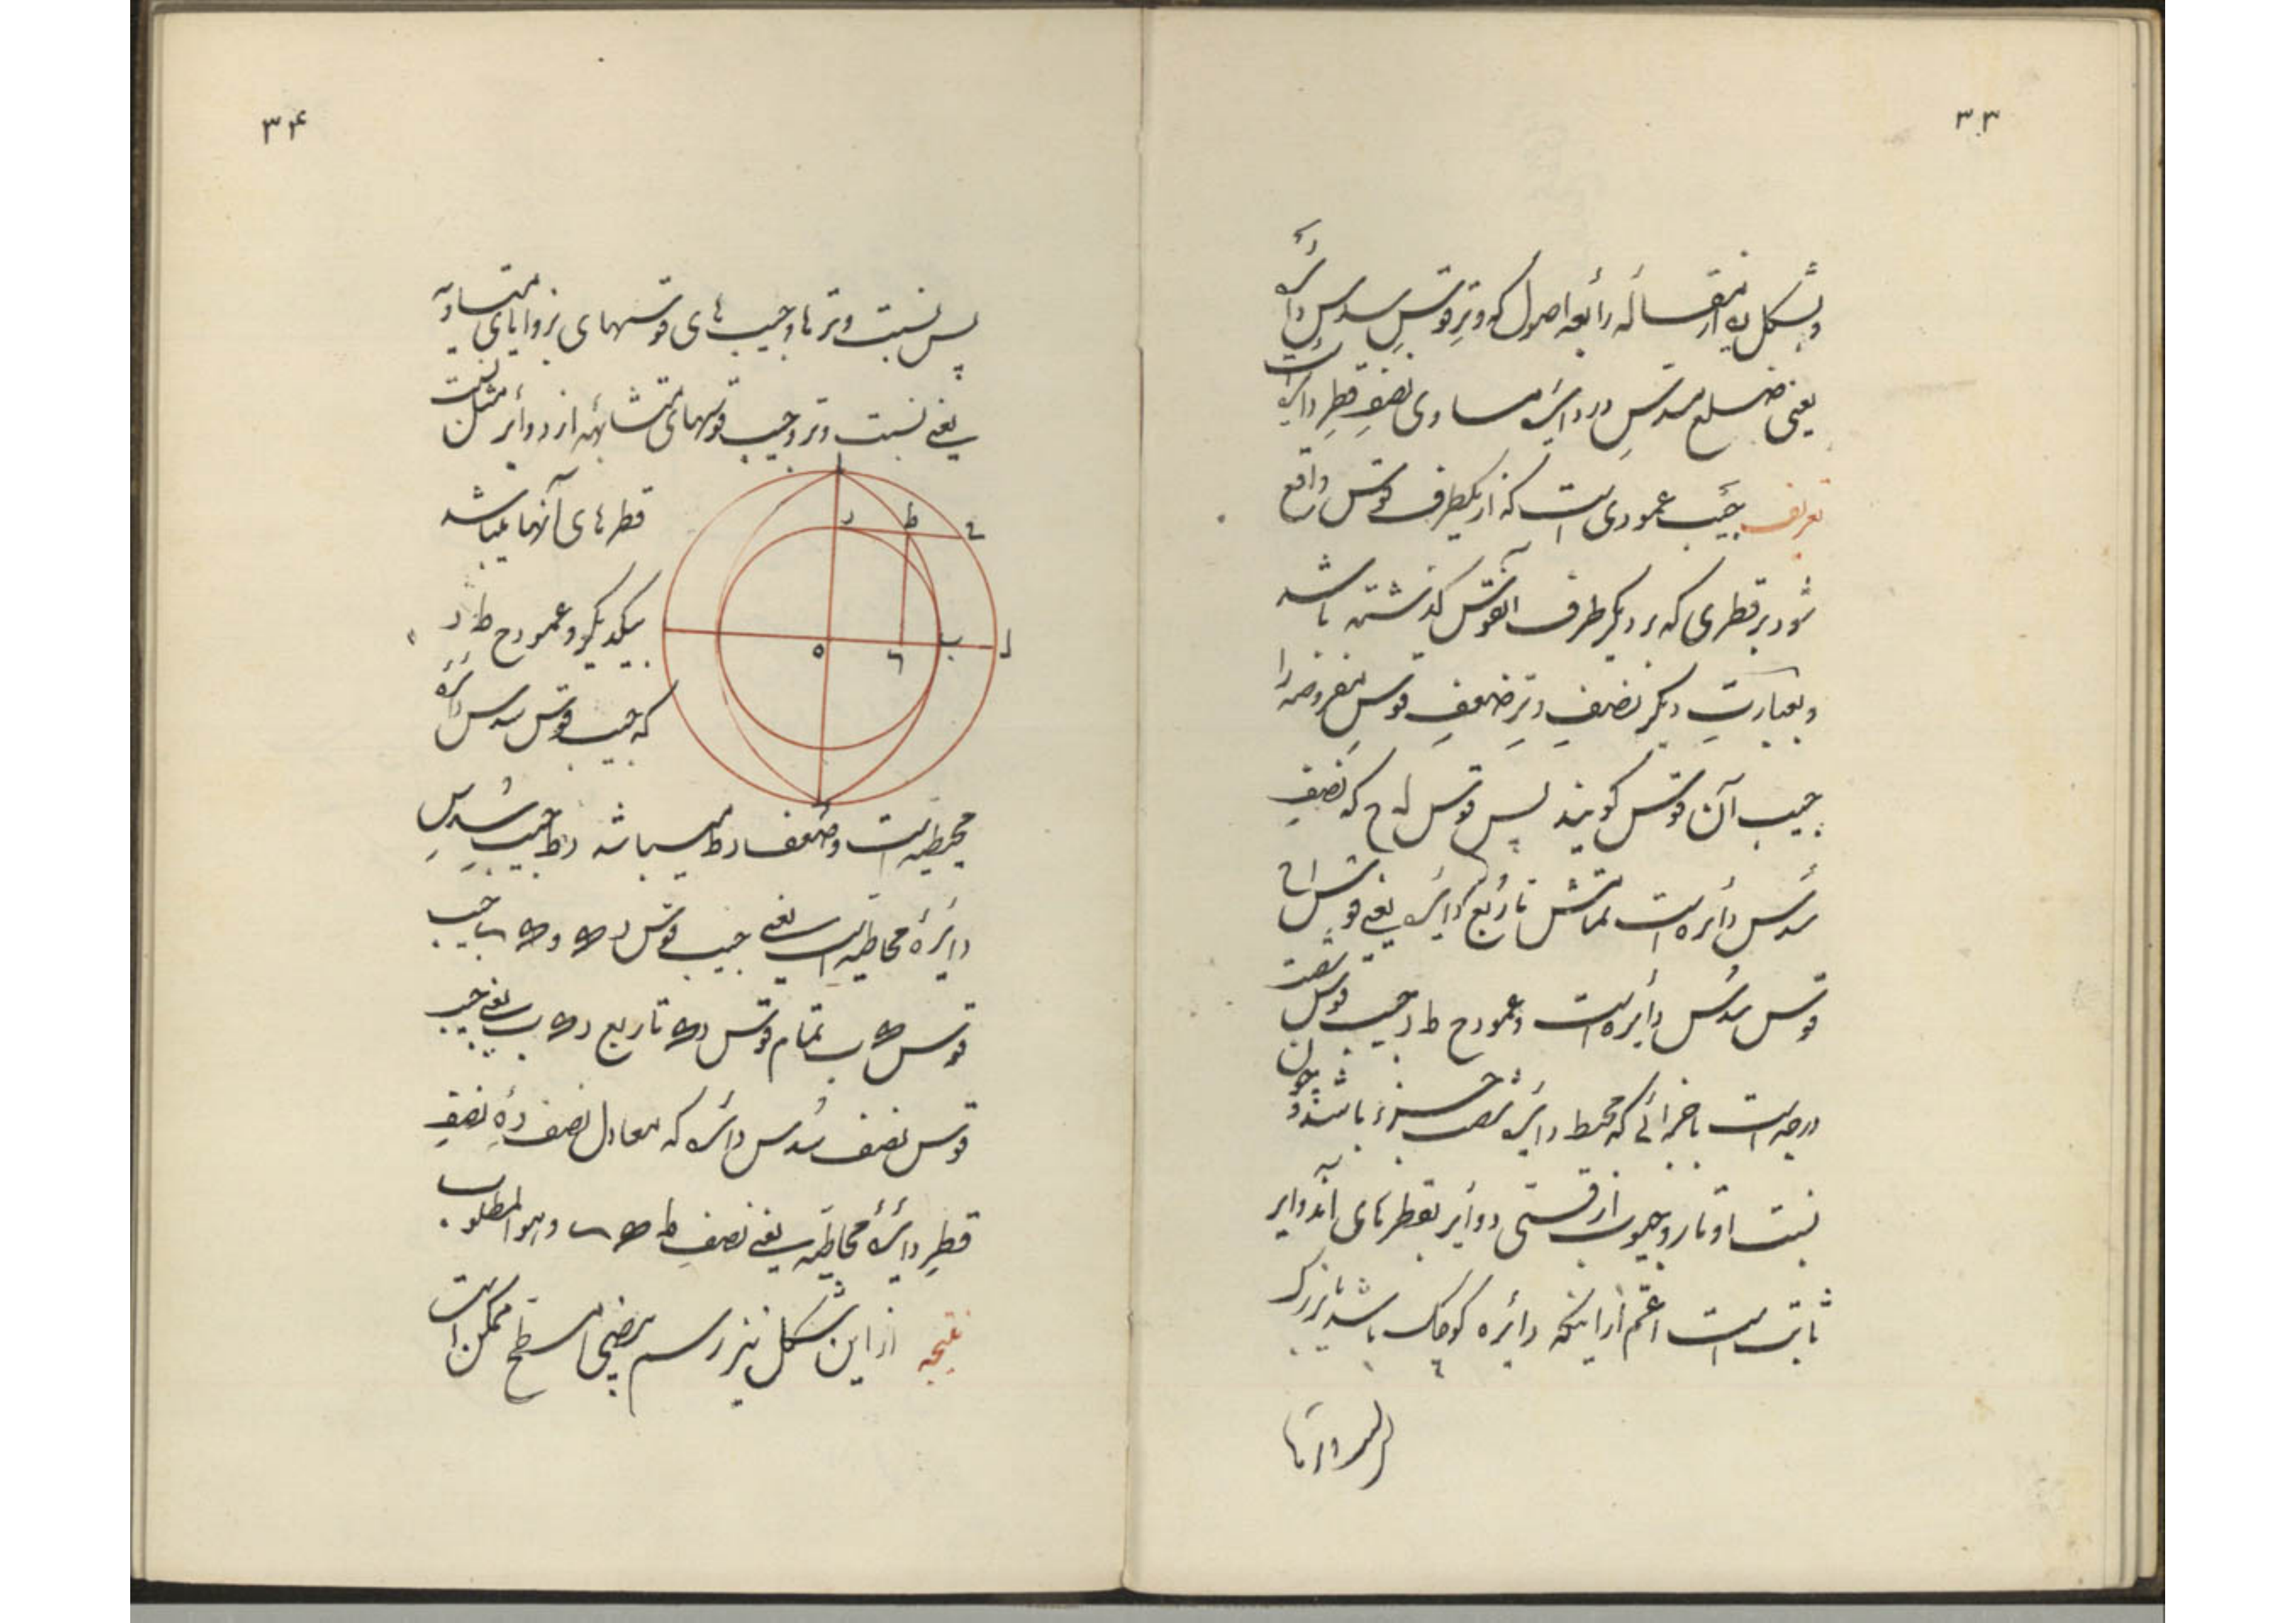 ۳۳
وبشکل یه از مقاله رابعه اصول که وتر قوس سدس دائره
یعنی ضلع مسدس در دائره مساوی نصف قطر دائره است
تعریف جیب عمودی است که از یکطرف قوس واقع
شود بر قطری که بر دیگر طرف آنقوس گذشته باشد
وبعبارت دیگر نصف وتر ضعف قوس مفروضه را
جیب آن قوس گویند پس قوس ح که نصف
سدس دائره است تمامش تا ربع دائره یعنی قوس ا ح
قوس سدس دائره است وعمود ح ط ر جیب قوس شصت
درجه است باجزائی که محیط دائره شصت جزء باشد وچون
نسبت اوتار وجیوب از قسی دوایر بقطرهای آندوایر
ثابت است اعم از اینکه دائره کوچک باشد یا بزرگ
۳۴
پس نسبت وترها وجیب های قوسهای بزوایای متساویه
یعنی نسبت وتر وجیب قوسهای متشابهه از دوائر مثل نسبت
قطرهای آنها میباشد
بیکدیگر وعمود ح ط ر
که جیب قوس سدس دائره
محیطیه است وضعف ر ط میباشد ر ط جیب سدس
دائره محاطیه است یعنی جیب قوس
قوس تمام قوس تا ربع یعنی جیب
قوس نصف سدس دائره که معادل نصف ره نصف
قطر دائره محاطیه یعنی نصف ط وهو المطلوب
نتیجه از این شکل نیز رسم بیضی مسطح ممکن است